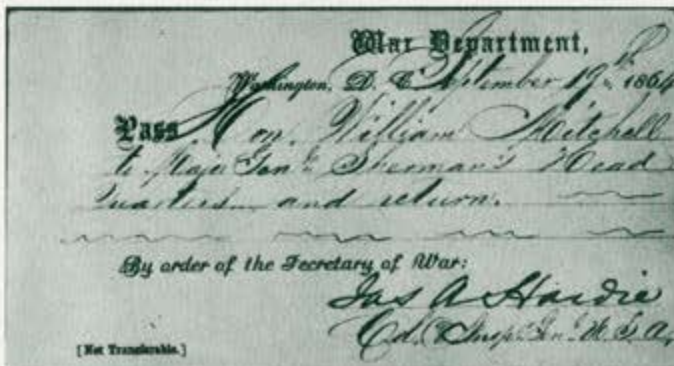 War Department,
Washington, D. C. September 19th 1864
Pass Hon. William Mitchell
to Major Genl Sherman's Head
Quarters and return.
By order of the Secretary of War:
Jas A Hardie
Col. & Insp. Gen. U.S.A.
[Not Transferable.]